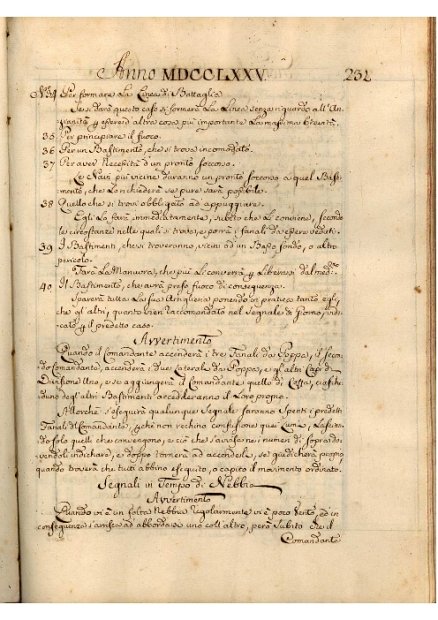 Anno MDCCLXXV. 232
N.º 34 Per formare La Linea di Battaglia
Se si darà questo caso si formerà La Linea senza riguardo all'An-
zianità, essere d'altre cosa più importante La massima brevità.
35 Per principiare il fuoco.
36 Per un Bastimento, che si trova incomodato.
37 Per aver Necessità d'un pronto soccorso.
Le Navi più vicine daranno un pronto soccorso a quel Basti-
mento, che Lo richiederà se pure sarà possibile.
38 Quello che si trova obbligato ad appoggiare.
Egli Lo farà immediatamente, subito che Le conviene, secondo
le circostanze nelle quali si trova, e porrà i fanali da essere veduto.
39 I Bastimenti, che si troveranno, vicini ad un Basso fondo, o altro
pericolo.
Farà La Manuvra, che più Li converrà per Liberarsi dal med.mo
40 Il Bastimento, che avrà preso fuoco di conseguenza.
Sparerà tutta La sua Artiglieria ponendo in pratica tanto egli,
che gli altri, quanto vien raccomandato nel Segnale di Giorno, indi-
cato il predetto caso.
Avvertimento
Quando il Comandante accenderà i tre Fanali da Poppa, il secon-
do Comandante, accenderà i due Laterali da Poppa, e gl'altri Capi di
Divisione Uno, e se aggiungerà il Comandante quello di Coffa, ciasche-
duno degl'altri Bastimenti accenderanno il Loro proprio.
Allorchè s'eseguirà qualunque Segnale saranno Spenti i predetti
Fanali dal Comandante, perchè non rechino confusione quei Lumi, Lascian-
do solo quelli che convengono, e ciò che savrà fare i numeri di sopra do-
vendoli indicare, e doppo tornerà ad accenderli, se giudicherà proprio
quando troverà che tutti abbino eseguito, o capito il movimento ordinato.
Segnali in Tempo di Nebbia
Avvertimento
Quando vi è un folta Nebbia regolarmente vi è poco Vento, ed in
conseguenza s'arrisca ad abbordarsi uno coll'altro, però Subito che il
Comandante